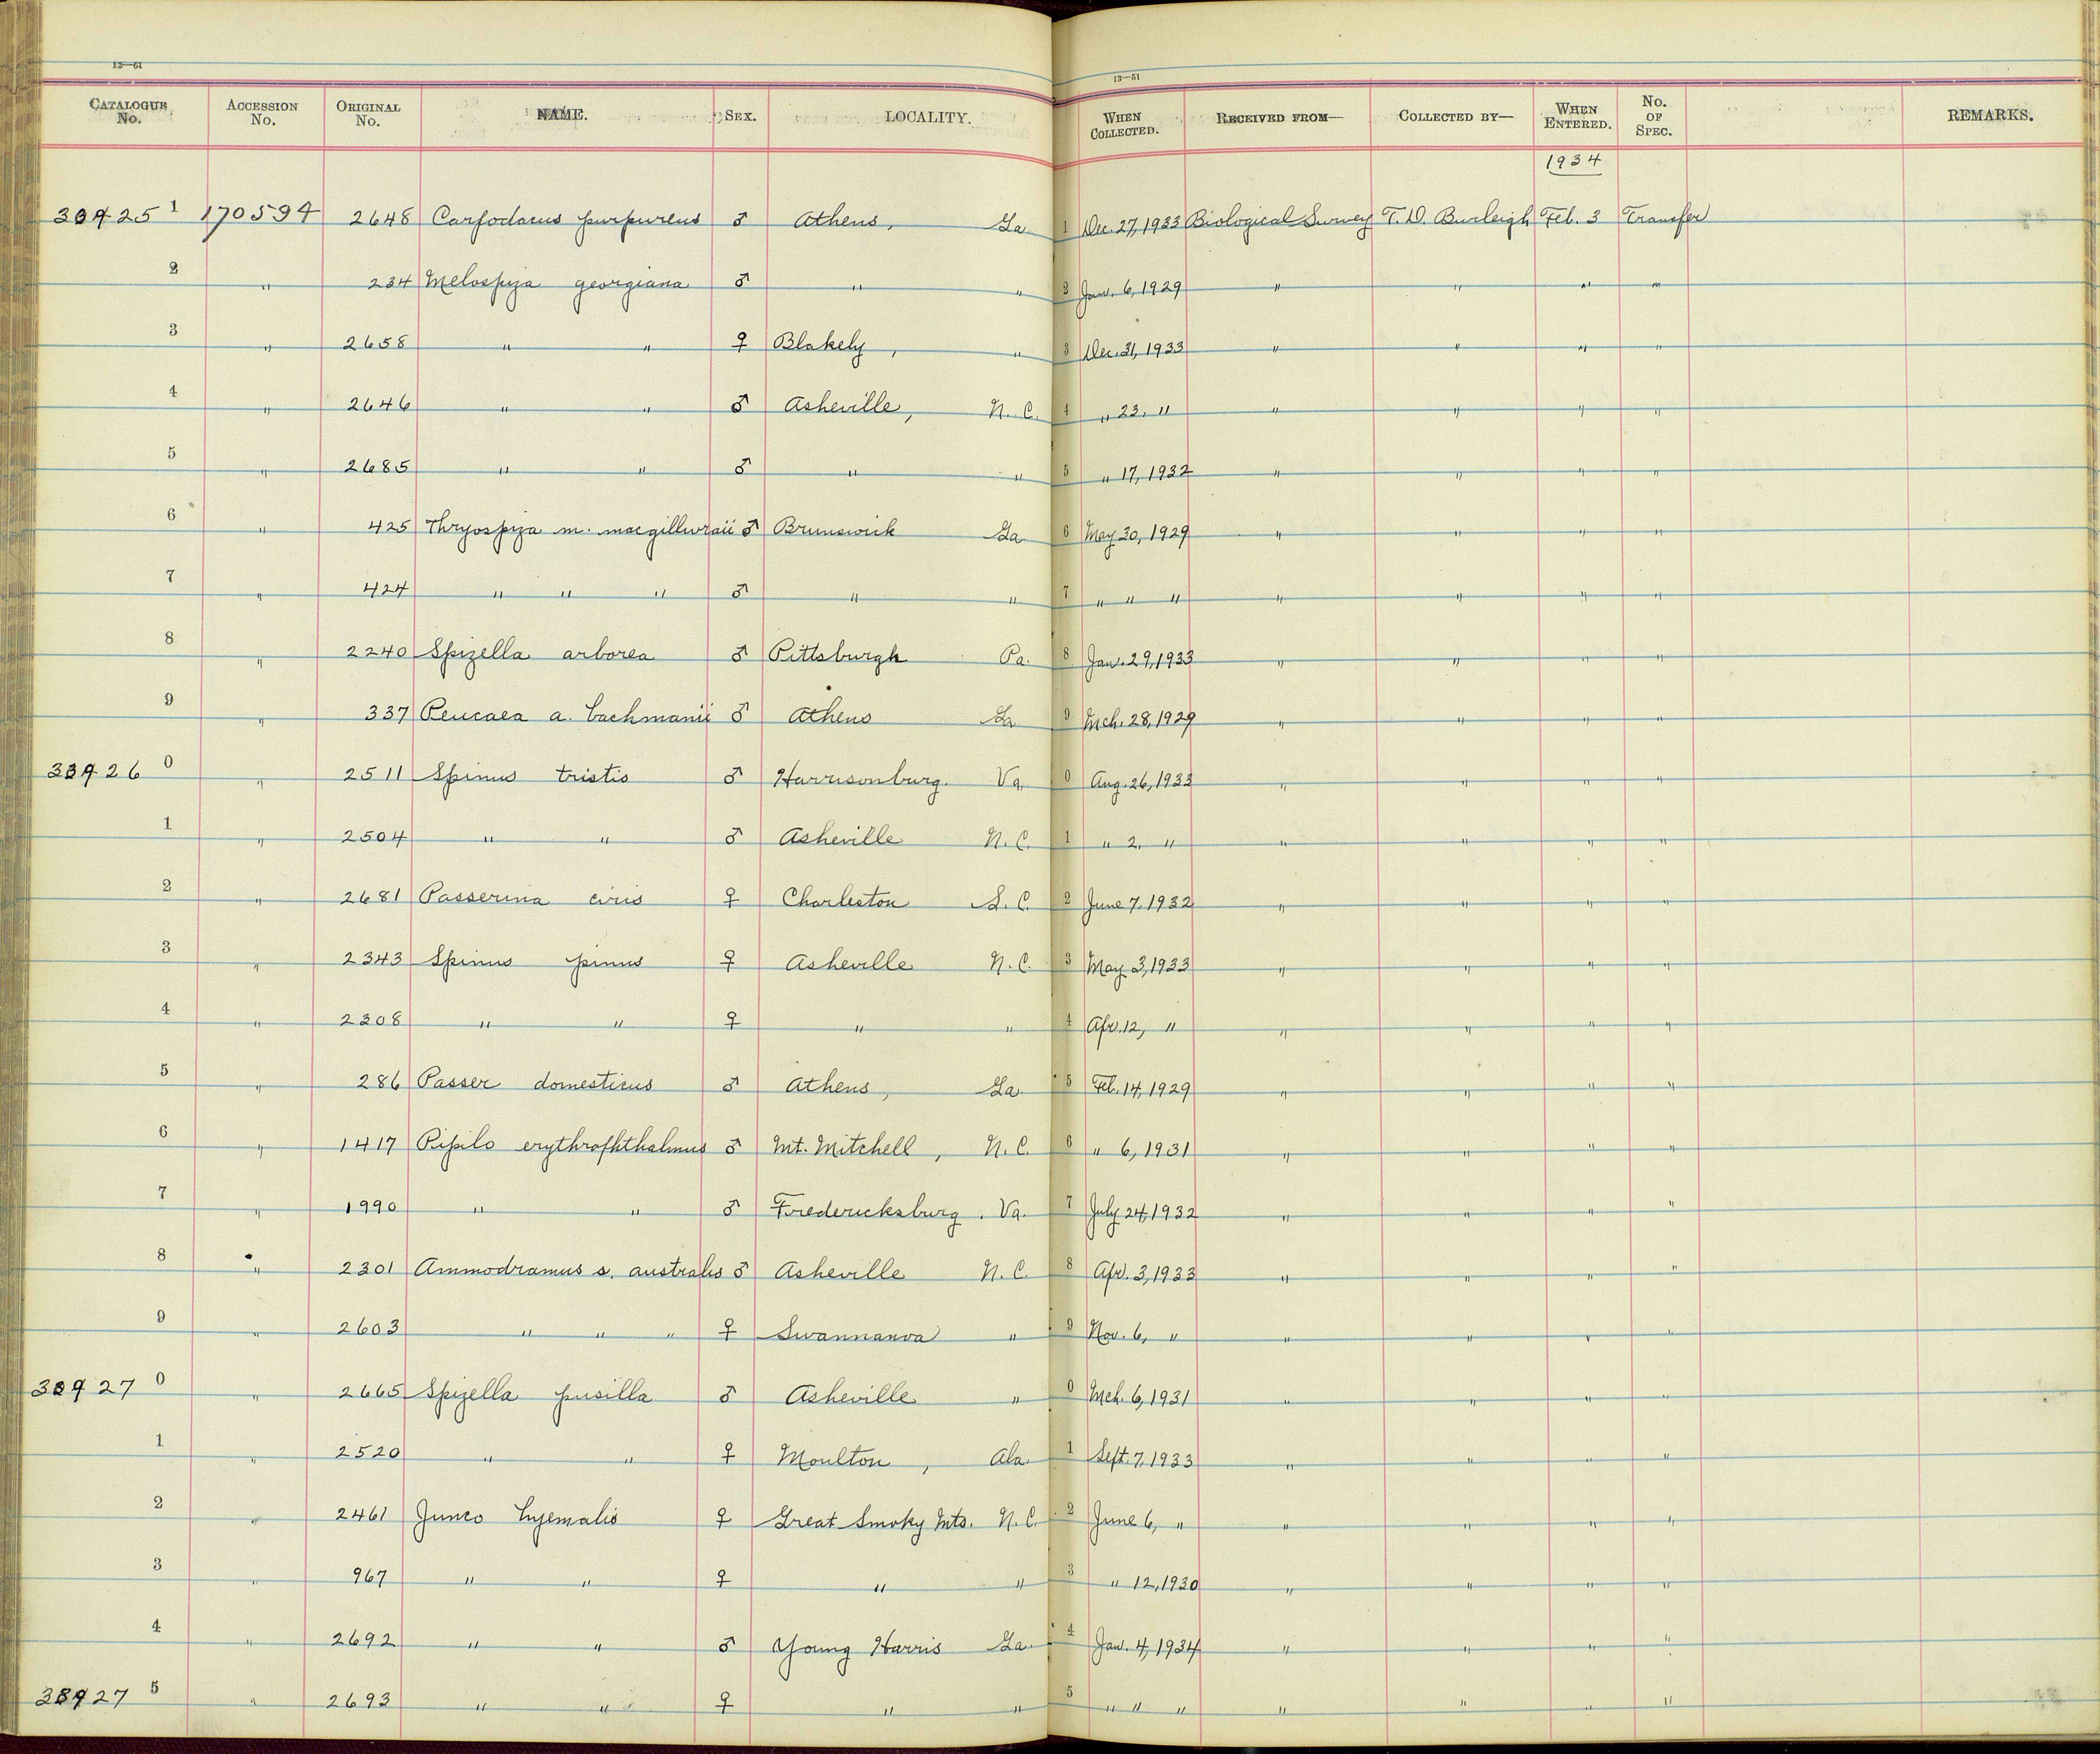 13—51 13—51
CATALOGUE No. ACCESSION No. ORIGINAL No. NAME. SEX. LOCALITY. WHEN COLLECTED. RECEIVED FROM— COLLECTED BY— WHEN ENTERED. No. OF SPEC. REMARKS.
1934
1 170594 2648 Carpodacus purpureus ♂ Athens, Ga. 1 Dec. 27, 1933 Biological Survey T. D. Burleigh Feb. 3 Transfer
2 " 234 Melospiza georgiana ♂ " " 2 Jan. 6, 1929 " " " "
3 " 2658 " " ♀ Blakely, " 3 Dec. 31, 1933 " " " "
4 " 2646 " " ♂ Asheville, N. C. 4 " 23, " " " " "
5 " 2685 " " ♂ " " 5 " 17, 1932 " " " "
6 " 425 Thryospiza m. macgillivraii ♂ Brunswick Ga. 6 May 30, 1929 " " " "
7 " 424 " " " ♂ " " 7 " " " " " " "
8 " 2240 Spizella arborea ♂ Pittsburgh Pa. 8 Jan. 29, 1933 " " " "
9 " 337 Peucaea a. bachmanii ♂ Athens Ga 9 Mch. 28, 1929 " " " "
0 " 2511 Spinus tristis ♂ Harrisonburg. Va. 0 Aug. 26, 1933 " " " "
1 " 2504 " " ♂ Asheville N. C. 1 " 2, " " " " "
2 " 2681 Passerina ciris ♀ Charleston S. C. 2 June 7, 1932 " " " "
3 " 2343 Spinus pinus ♀ Asheville N. C. 3 May 3, 1933 " " " "
4 " 2308 " " ♀ " " 4 Apr. 12, " " " " "
5 " 286 Passer domesticus ♂ Athens, Ga. 5 Feb. 14, 1929 " " " "
6 " 1417 Pipilo erythrophthalmus ♂ Mt. Mitchell, N. C. 6 " 6, 1931 " " " "
7 " 1990 " " ♂ Fredericksburg. Va. 7 July 24, 1932 " " " "
8 " 2301 Ammodramus s. australis ♂ Asheville N. C. 8 Apr. 3, 1933 " " " "
9 " 2603 " " " ♀ Swannanoa " 9 Nov. 6, " " " " "
0 " 2665 Spizella pusilla ♂ Asheville " 0 Mch. 6, 1931 " " " "
1 " 2520 " " ♀ Moulton, Ala. 1 Sept. 7, 1933 " " " "
2 " 2461 Junco hyemalis ♀ Great Smoky Mts. N. C. 2 June 6, " " " " "
3 " 967 " " ♀ " " 3 " 12, 1930 " " " "
4 " 2692 " " ♂ Young Harris Ga. 4 Jan. 4, 1934 " " " "
5 " 2693 " " ♀ " " 5 " " " " " " "